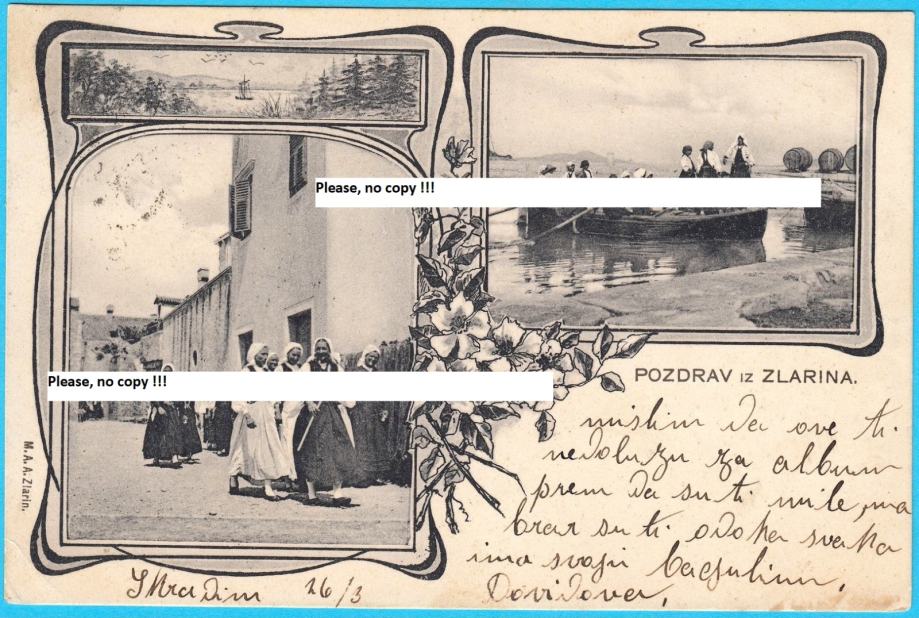 Please, no copy !!!
Please, no copy !!!
POZDRAV IZ ZLARINA.
M. A. A. Zlarin.
mislim da ove ti
nedolazu za album
prem da su ti mile, ma
brar su ti odoka svaka
ima svoju
Dovidova,
Skradim 26/3